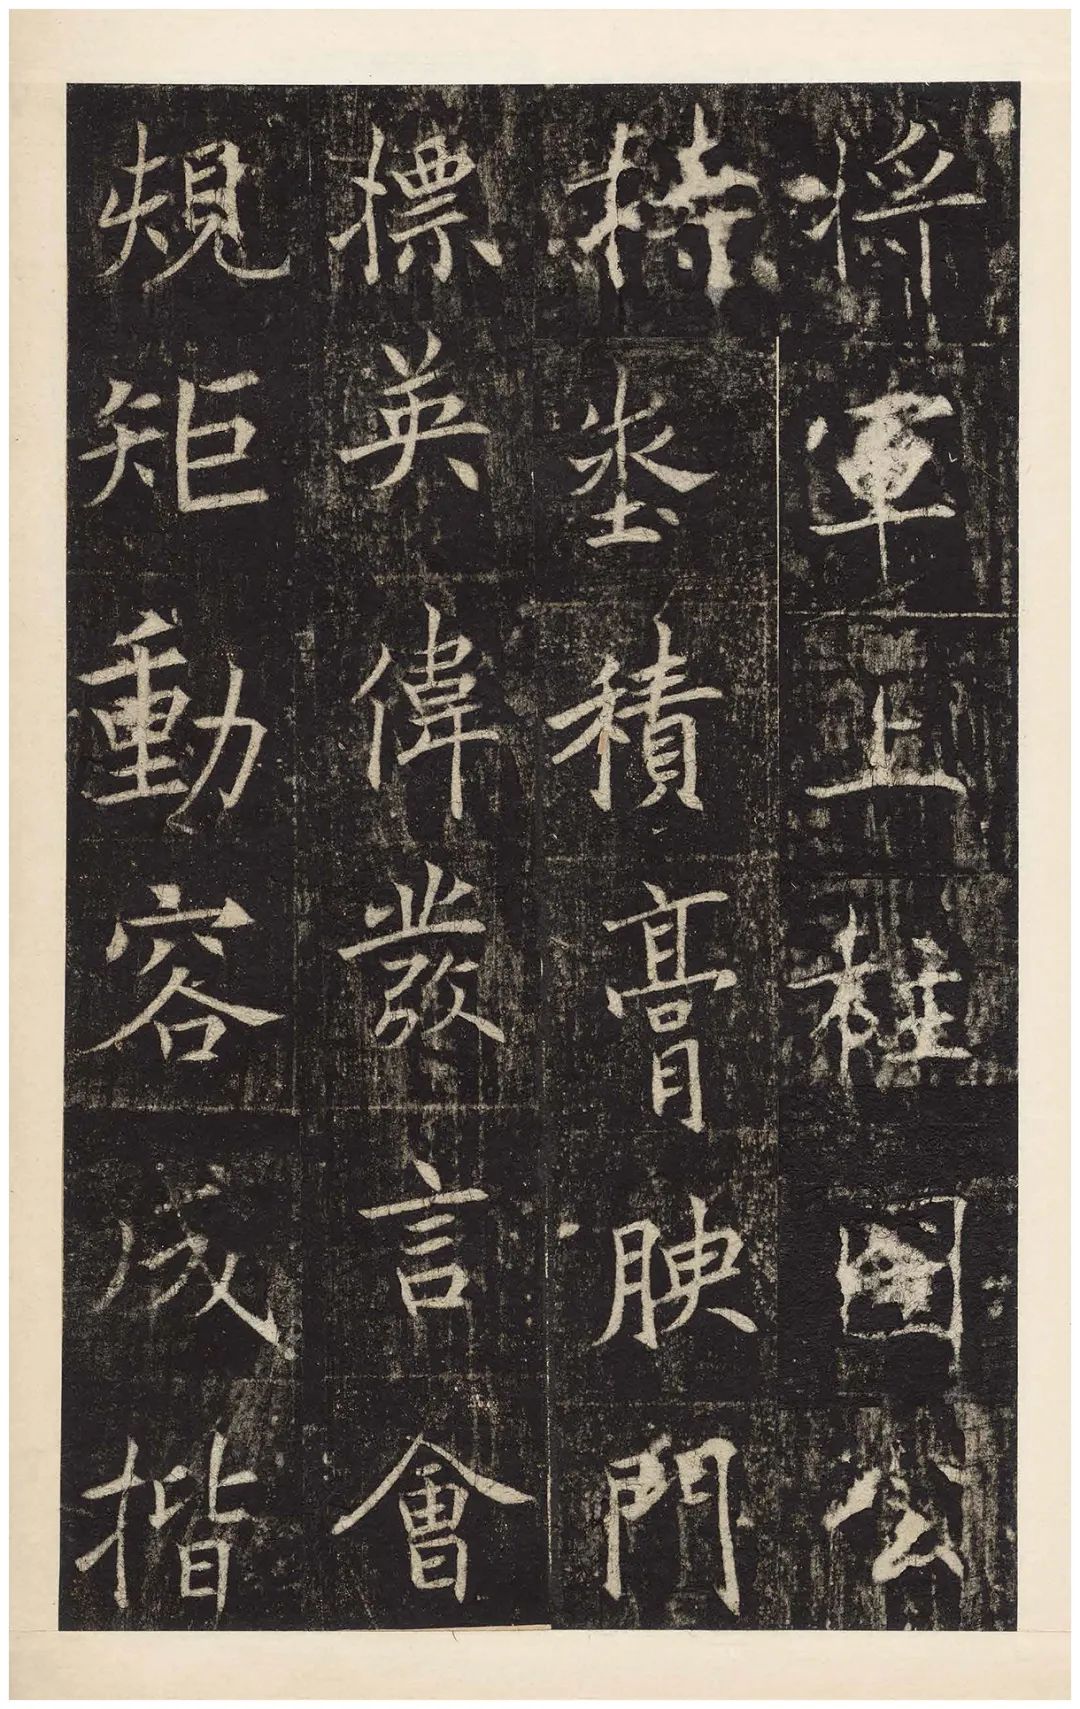 將軍上柱圀公
特埊積膏腴門
標英偉發言會
規矩動容成楷